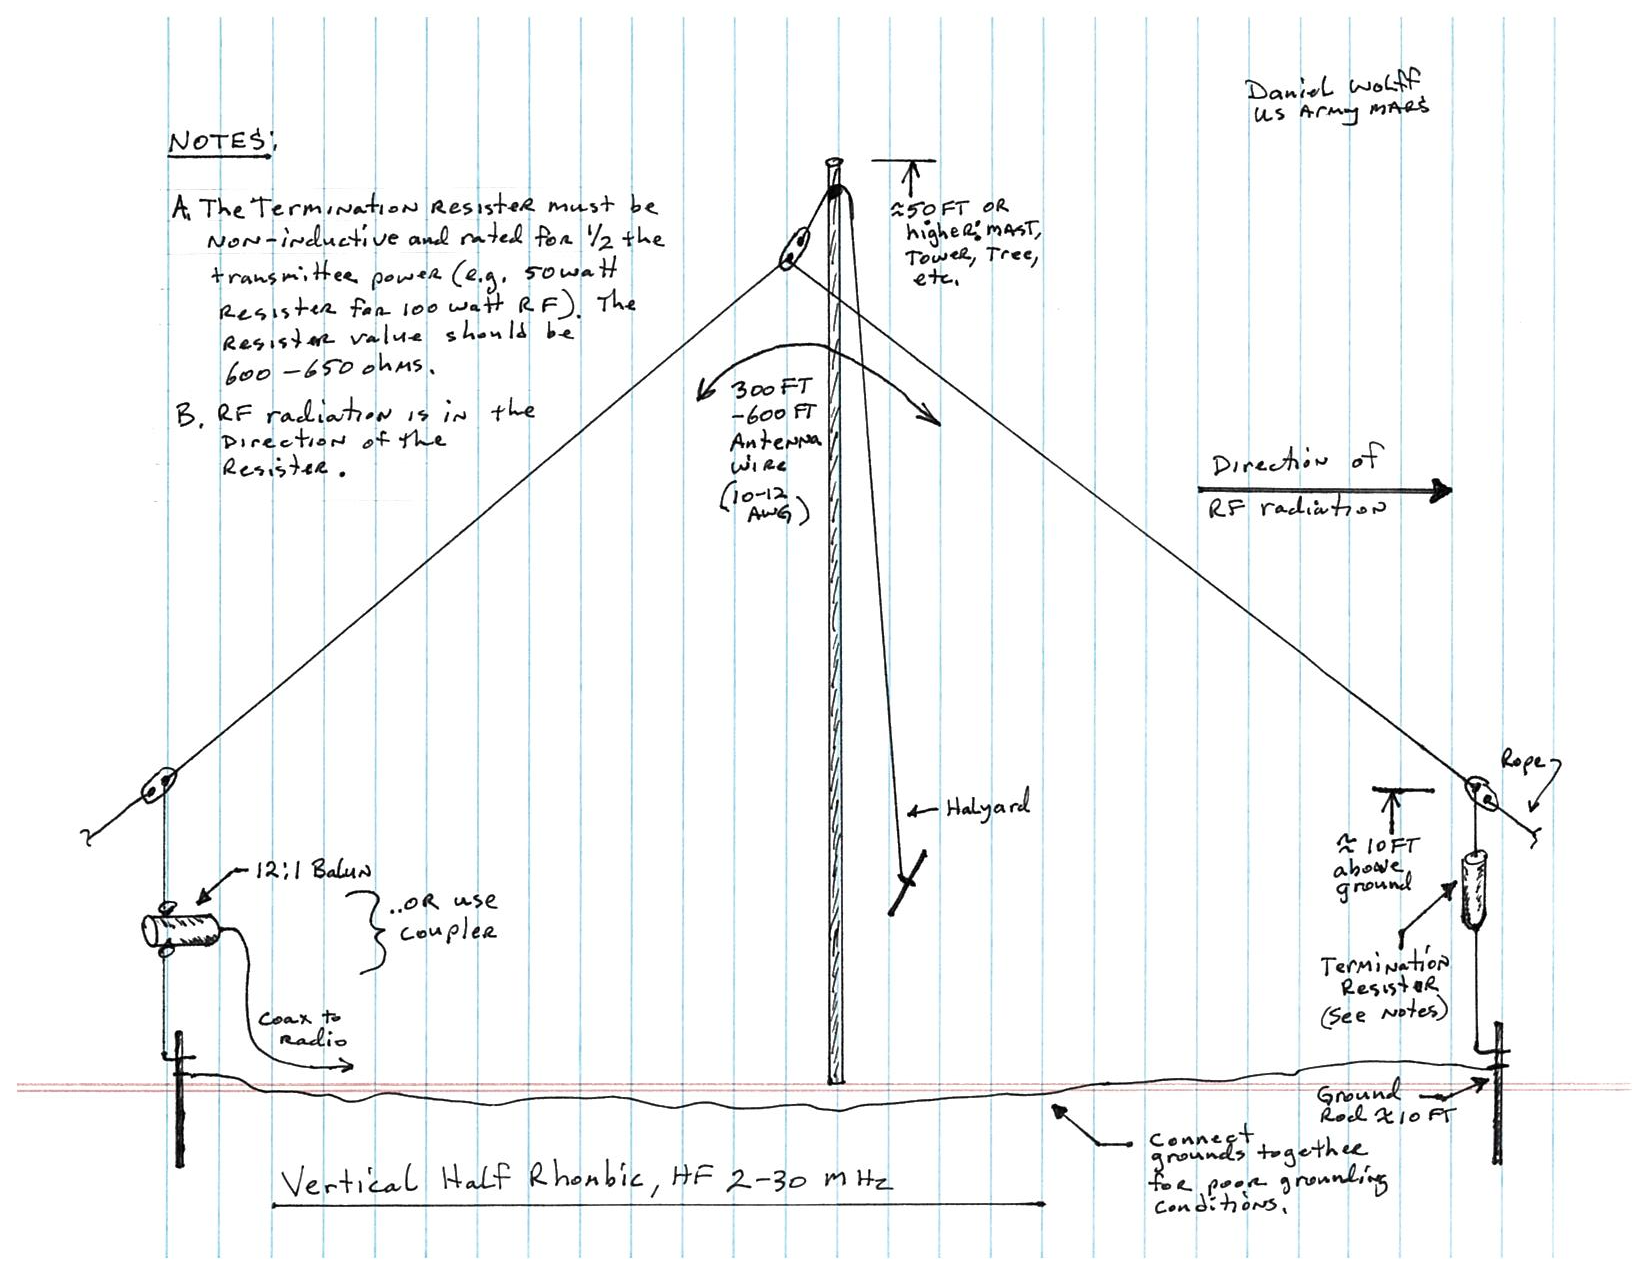 Daniel Wolff
US Army MARS
NOTES:
A. The Termination Resister must be
non-inductive and rated for 1/2 the
transmitter power (e.g. 50 watt
Resister for 100 watt RF). The
Resister value should be
600 - 650 ohms.
B. RF radiation is in the
Direction of the
Resister.
≈50 FT OR
higher: MAST,
Tower, Tree,
etc.
300 FT
-600 FT
Antenna
wire
(10-12
AWG)
Direction of
RF radiation
Rope
Halyard
≈ 10 FT
above
ground
12:1 Balun
..OR use
coupler
Termination
Resister
(See Notes)
Coax to
Radio
Ground
Rod ≈ 10 FT
Connect
grounds together
for poor grounding
conditions.
Vertical Half Rhonbic, HF 2-30 MHz